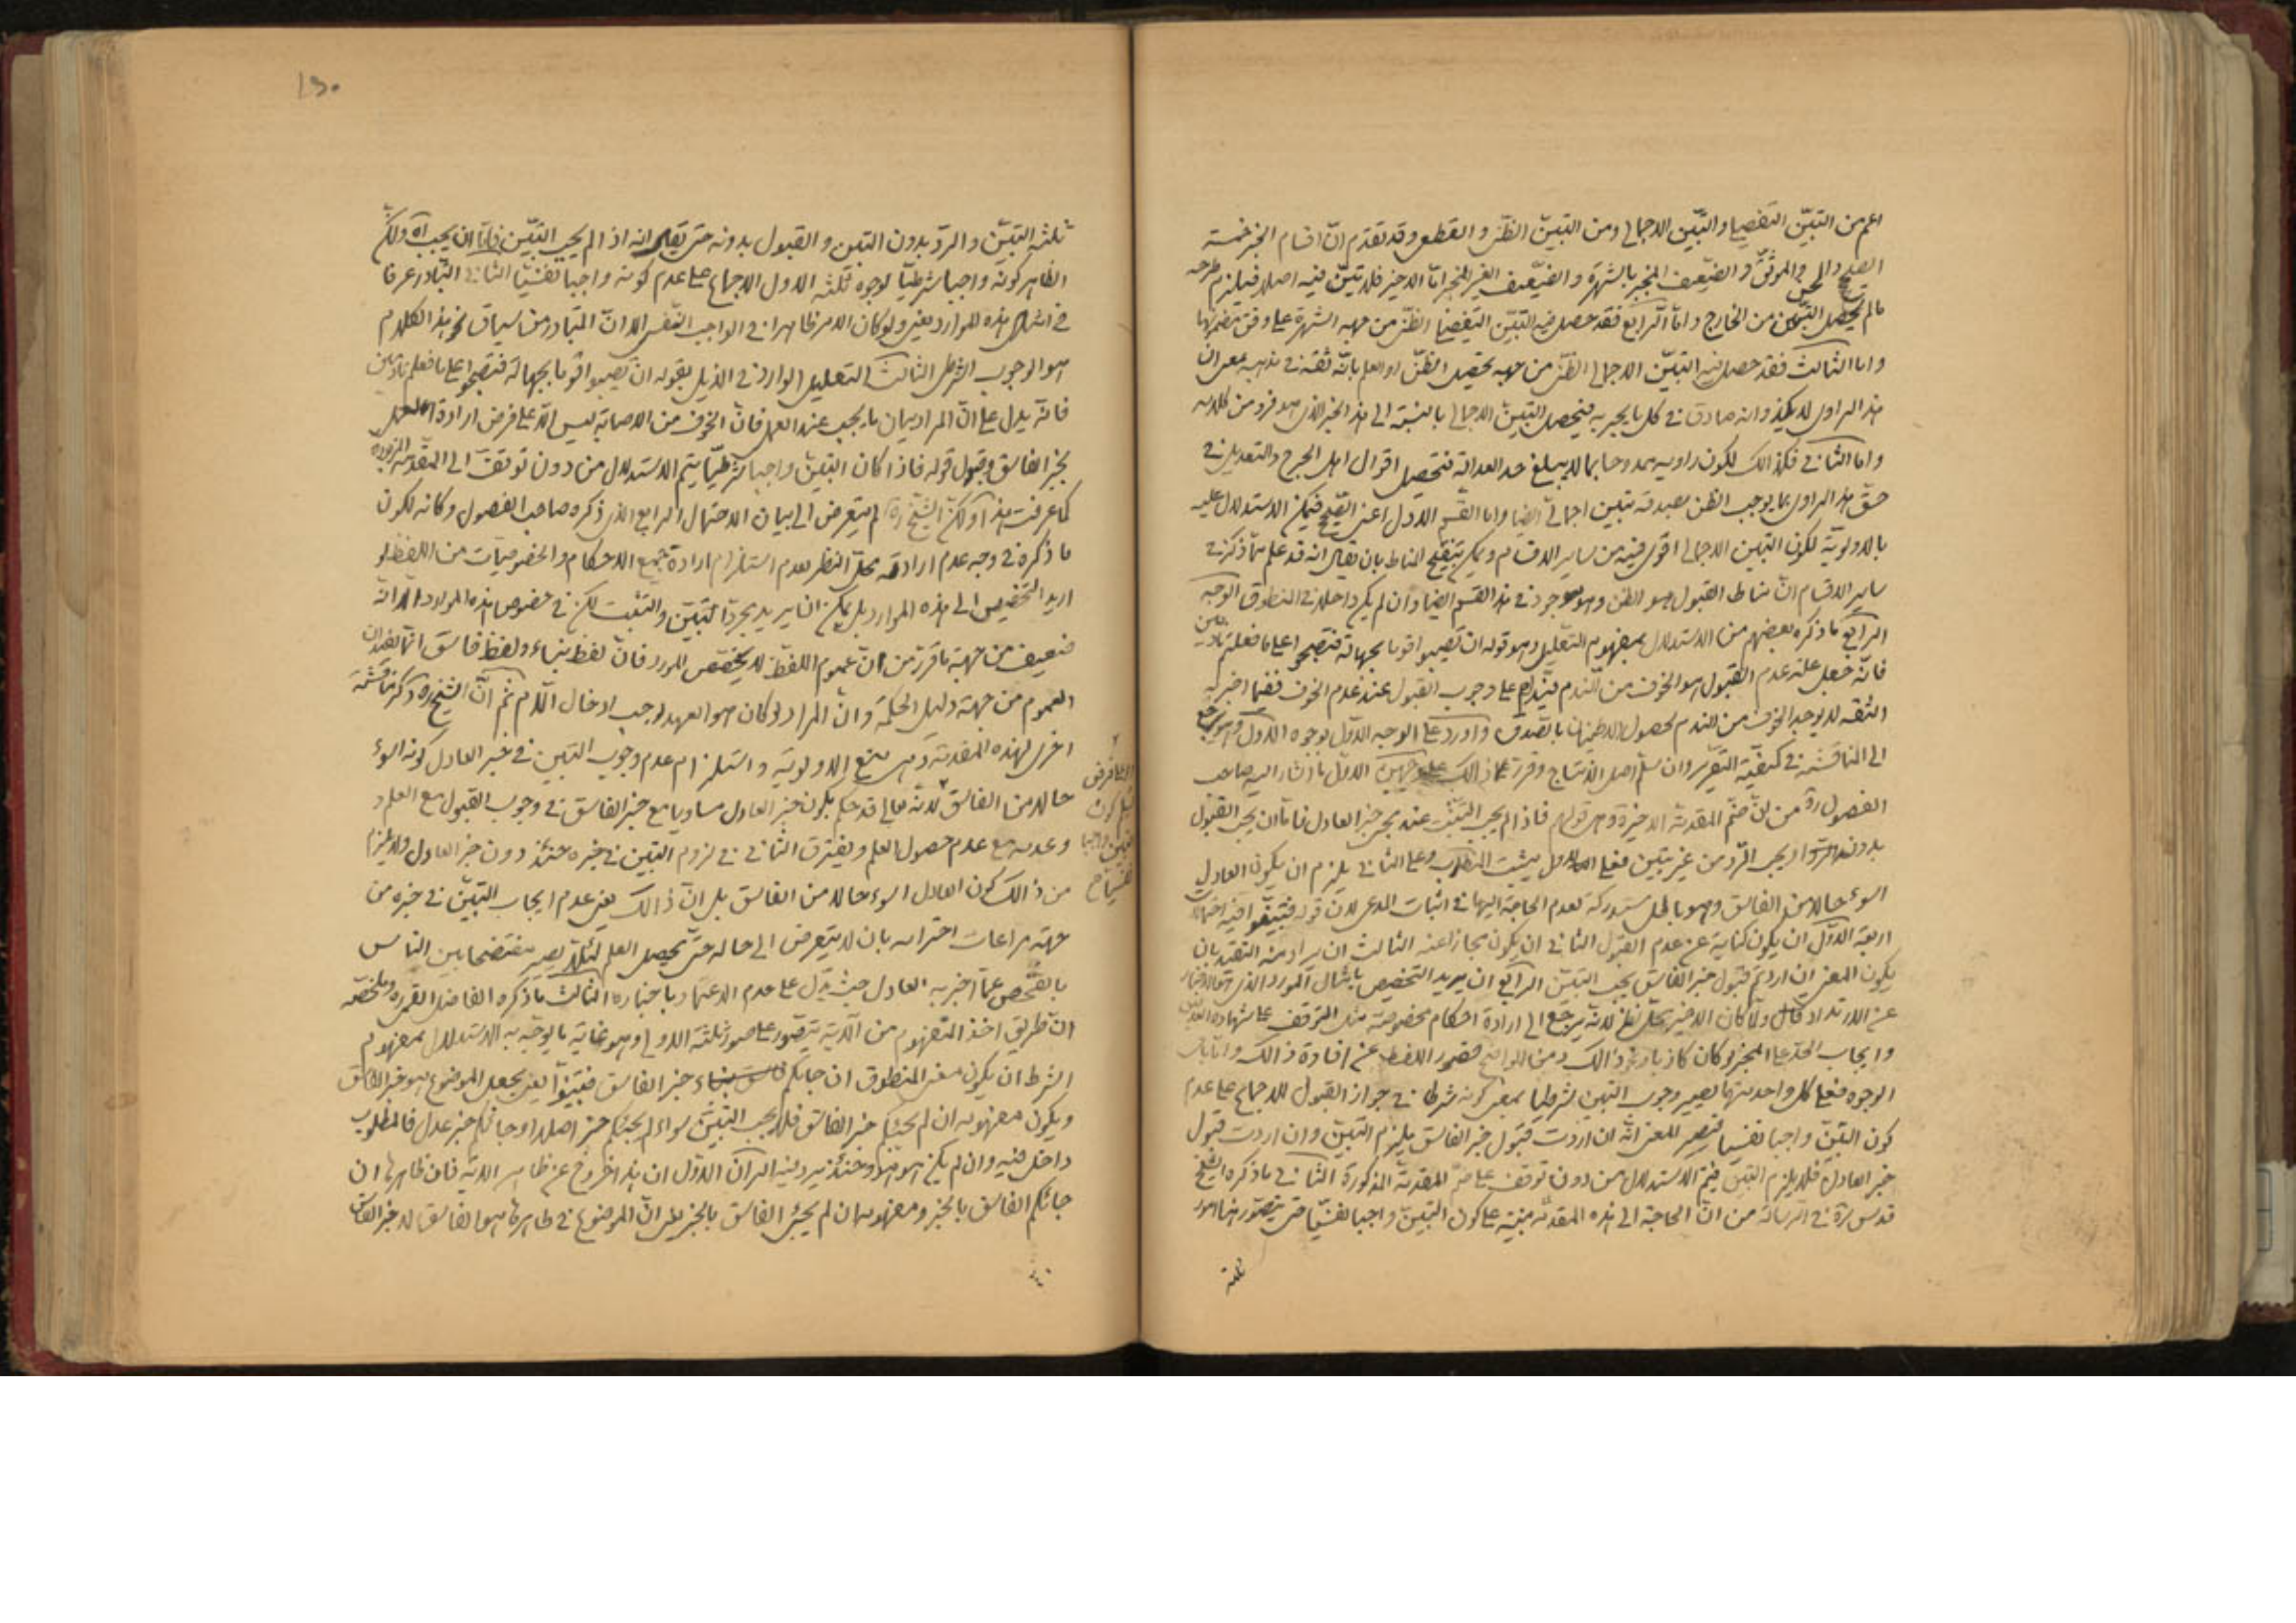 اعم من التبيّن التفصيلي والتبيّن الاجمالي ومن التبيّن الظنّي والقطعي وقد تقدّم انّ اقسام الخبر خمسة
الصحيح والحسن والموثّق والضّعيف المنجبر بالشهرة والضّعيف الغير المنجبر امّا الاخير فلا تبيّن فيه اصلا فيلزم طرحه
ما لم يحصل التبيّن من الخارج وامّا الرّابع فقد حصل فيه التبيّن التفصيلي الظنّي من جهة الشهرة على وفق مضمونها
وامّا الثالث فقد حصل فيه التبيّن الاجمالي الظنّي من جهة تحصيل الظنّ او العلم بانّه ثقة في مذهبه بمعنى انّ
هذا الراوي لا يكذب وانه صادق في كل ما يخبر به فيحصل التبيّن الاجمالي بالنسبة الى هذا الخبر الذي هو فرد من كلامه
وامّا الثاني فكذالك لكون راويه ممدوحا بما لا يبلغ حد العدالة فتحصيل اقوال اهل الجرح والتعديل في
حقّ هذا الراوي بما يوجب الظن بصدقه تبيّن اجماليّ ايضا وامّا القسم الاول اعني الصّحيح فيمكن الاستدلال عليه
بالاولويّة لكون التبيّن الاجمالي اقوى فيه من ساير الاقسام ويمكن بتنقيح المناط بان يقال انه قد علم ممّا ذكر في
ساير الاقسام انّ مناط القبول هو الظن وهو موجود في هذا القسم ايضا وان لم يكن داخلا في المنطوق الوجه
الرّابع ما ذكره بعضهم من الاستدلال بمفهوم التعليل وهو قوله ان تصيبوا قوما بجهالة فتصبحوا على ما فعلتم نادمين
فانّه جعل علّة عدم القبول هو الخوف من النّدم فيدلّ على وجوب القبول عند عدم الخوف ففيما اخبر به
الثقة لا يوجد الخوف من الندم لحصول الاطمينان بالصّدق واورد على الوجه الاوّل بوجوه الاوّل وهو راجع
الى المناقشة في كيفيّة التقرير وان سلّم اصل الانتاج وقرّر ذالك على وجهين الاوّل ما اشار اليه صاحب
الفصول ره من انّ ضمّ المقدمة الاخيرة وهو قولهم فاذا لم يجب التثبّت عند مجيء خبر العادل فامّا ان يجب القبول
بدونه او يجب الرّد من غير تبيّن فعلى الاول يثبت المطلوب وعلى الثاني يلزم ان يكون العادل
اسوء حالا من الفاسق وهو باطل مستدركة لعدم الحاجة اليها في اثبات المدعى لانّ قوله فتبيّنوا فيه احتمالات
اربعة الاوّل ان يكون كناية عن عدم القبول الثاني ان يكون مجازا عنه الثالث ان يراد منه التقييد بان
يكون المعنى ان اردتم قبول خبر الفاسق يجب التبيّن الرّابع ان يريد التخصيص بامثال المورد الذي هو الاخبار
عن الارتداد قال ولمّا كان الاخير محلّ نظر لانّه يرجع الى ارادة احكام مخصوصة مثل التوقف على شهادة العدلين
وايجاب الحدّ على المخبر لو كان كاذبا ونحو ذالك ومن الواضح قصور اللفظ عن افادة ذالك وامّا باقي
الوجوه فعلى كل واحد منهما يصير وجوب التبيّن شرطيا بمعنى كونه شرطا في جواز القبول للاجماع على عدم
كون التبيّن واجبا نفسيا فيصير المعنى انّه ان اردت قبول خبر الفاسق يلزم التبيّن وان اردت قبول
خبر العادل فلا يلزم التبيّن فيتمّ الاستدلال من دون توقف على ضمّ المقدمة المذكورة الثاني ما ذكره الشيخ
قدس سرّه في الرّسالة من انّ الحاجة الى هذه المقدمة مبنيّة على كون التبيّن واجبا نفسيّا حتى يتصوّر هنا امور
ثلثة
١٥٠
ثلثة التبيّن والردّ بدون التبيّن والقبول بدونه حتى يقال انه اذا لم يجب التبيّن فامّا ان يجب آه ولكنّ
الظاهر كونه واجبا شرطيّا لوجوه ثلثة الاول الاجماع على عدم كونه واجبا نفسيّا الثاني التّبادر عرفا
في امثال هذه الموارد يعني ولو كان الامر ظاهرا في الواجب النّفسي الا انّ المتبادر من سياق نحو هذا الكلام
هو الوجوب الشرطي الثالث التعليل الوارد في الذيل بقوله ان تصيبوا قوما بجهالة فتصبحوا على ما فعلتم نادمين
فانّه يدل على انّ المراد بيان ما يجب عند العمل فانّ الخوف من الاصابة ليس الّا على فرض ارادة العمل
بخبر الفاسق وقبول قوله فاذا كان التبيّن واجبا شرطيّا يتم الاستدلال من دون توقف الى المقدمة المزبورة
كما عرفت هذا ولكنّ الشيخ ره لم يتعرض الى بيان الاحتمال الرابع الذي ذكره صاحب الفصول وكانه لكون
ما ذكره في وجه عدم ارادته محلّ النظر لعدم استلزام ارادة جميع الاحكام والخصوصيّات من اللفظ لو
اريد التخصيص الى هذه الموارد بل يمكن ان يريد مجرّد التبيّن والتثبّت لكن في خصوص هذه الموارد الّا انّه
ضعيف من جهة ما قرّر من انّ عموم اللفظ لا يخصّص المورد فانّ لفظ نباء ولفظ فاسق انّما يفيدان
العموم من جهة دليل الحكمة وانّ المراد لو كان هو العهد لوجب ادخال اللّام ثم انّ الشيخ ره ذكر مناقشة
اخرى لهذه المقدمة وهي منع الاولويّة واستلزام عدم وجوب التبيّن في خبر العادل كونه اسوء
حالا من الفاسق لانّه تعالى قد حكم بكون خبر العادل مساويا مع خبر الفاسق في وجوب القبول مع العلم و
وعدمه مع عدم حصول العلم ويفترق الثاني في لزوم التبيّن في خبره حينئذ دون خبر العادل ولا يلزم
من ذالك كون العادل اسوء حالا من الفاسق بل انّ ذالك يعني عدم ايجاب التبيّن في خبره من
جهة مراعات احترامه بان لا يتعرض الى حاله حتى يحصل العلم لئلّا يصير مفتضحا بين الناس
بالتفحّص عمّا اخبر به العادل حيث يدلّ على عدم الاعتماد باخباره الثالث ما ذكره الفاضل القمي ره وملخّصه
انّ طريق اخذ المفهوم من الآية يتصوّر على صور ثلثة الاولى وهو غاية ما يوجّه به الاستدلال بمفهوم
الشرط ان يكون معنى المنطوق ان جائكم خبر الفاسق فتبيّنوا يعني بجعل الموضوع هو خبر الفاسق
ويكون مفهومه ان لم يجئكم خبر الفاسق فلا يجب التبيّن سواء لم يجئكم خبر اصلا او جائكم خبر عدل فالمطلوب
داخل فيه وان لم يكن هو هو وحينئذ يرد فيه امران الاوّل ان هذا خروج عن ظاهر الاية فان ظاهرها ان
جائكم الفاسق بالخبر ومفهومه ان لم يجئ الفاسق بالخبر يعني انّ الموضوع في ظاهرها هو الفاسق لا خبر الفاسق
كون
التبيّن واجبا
نفسيا صح